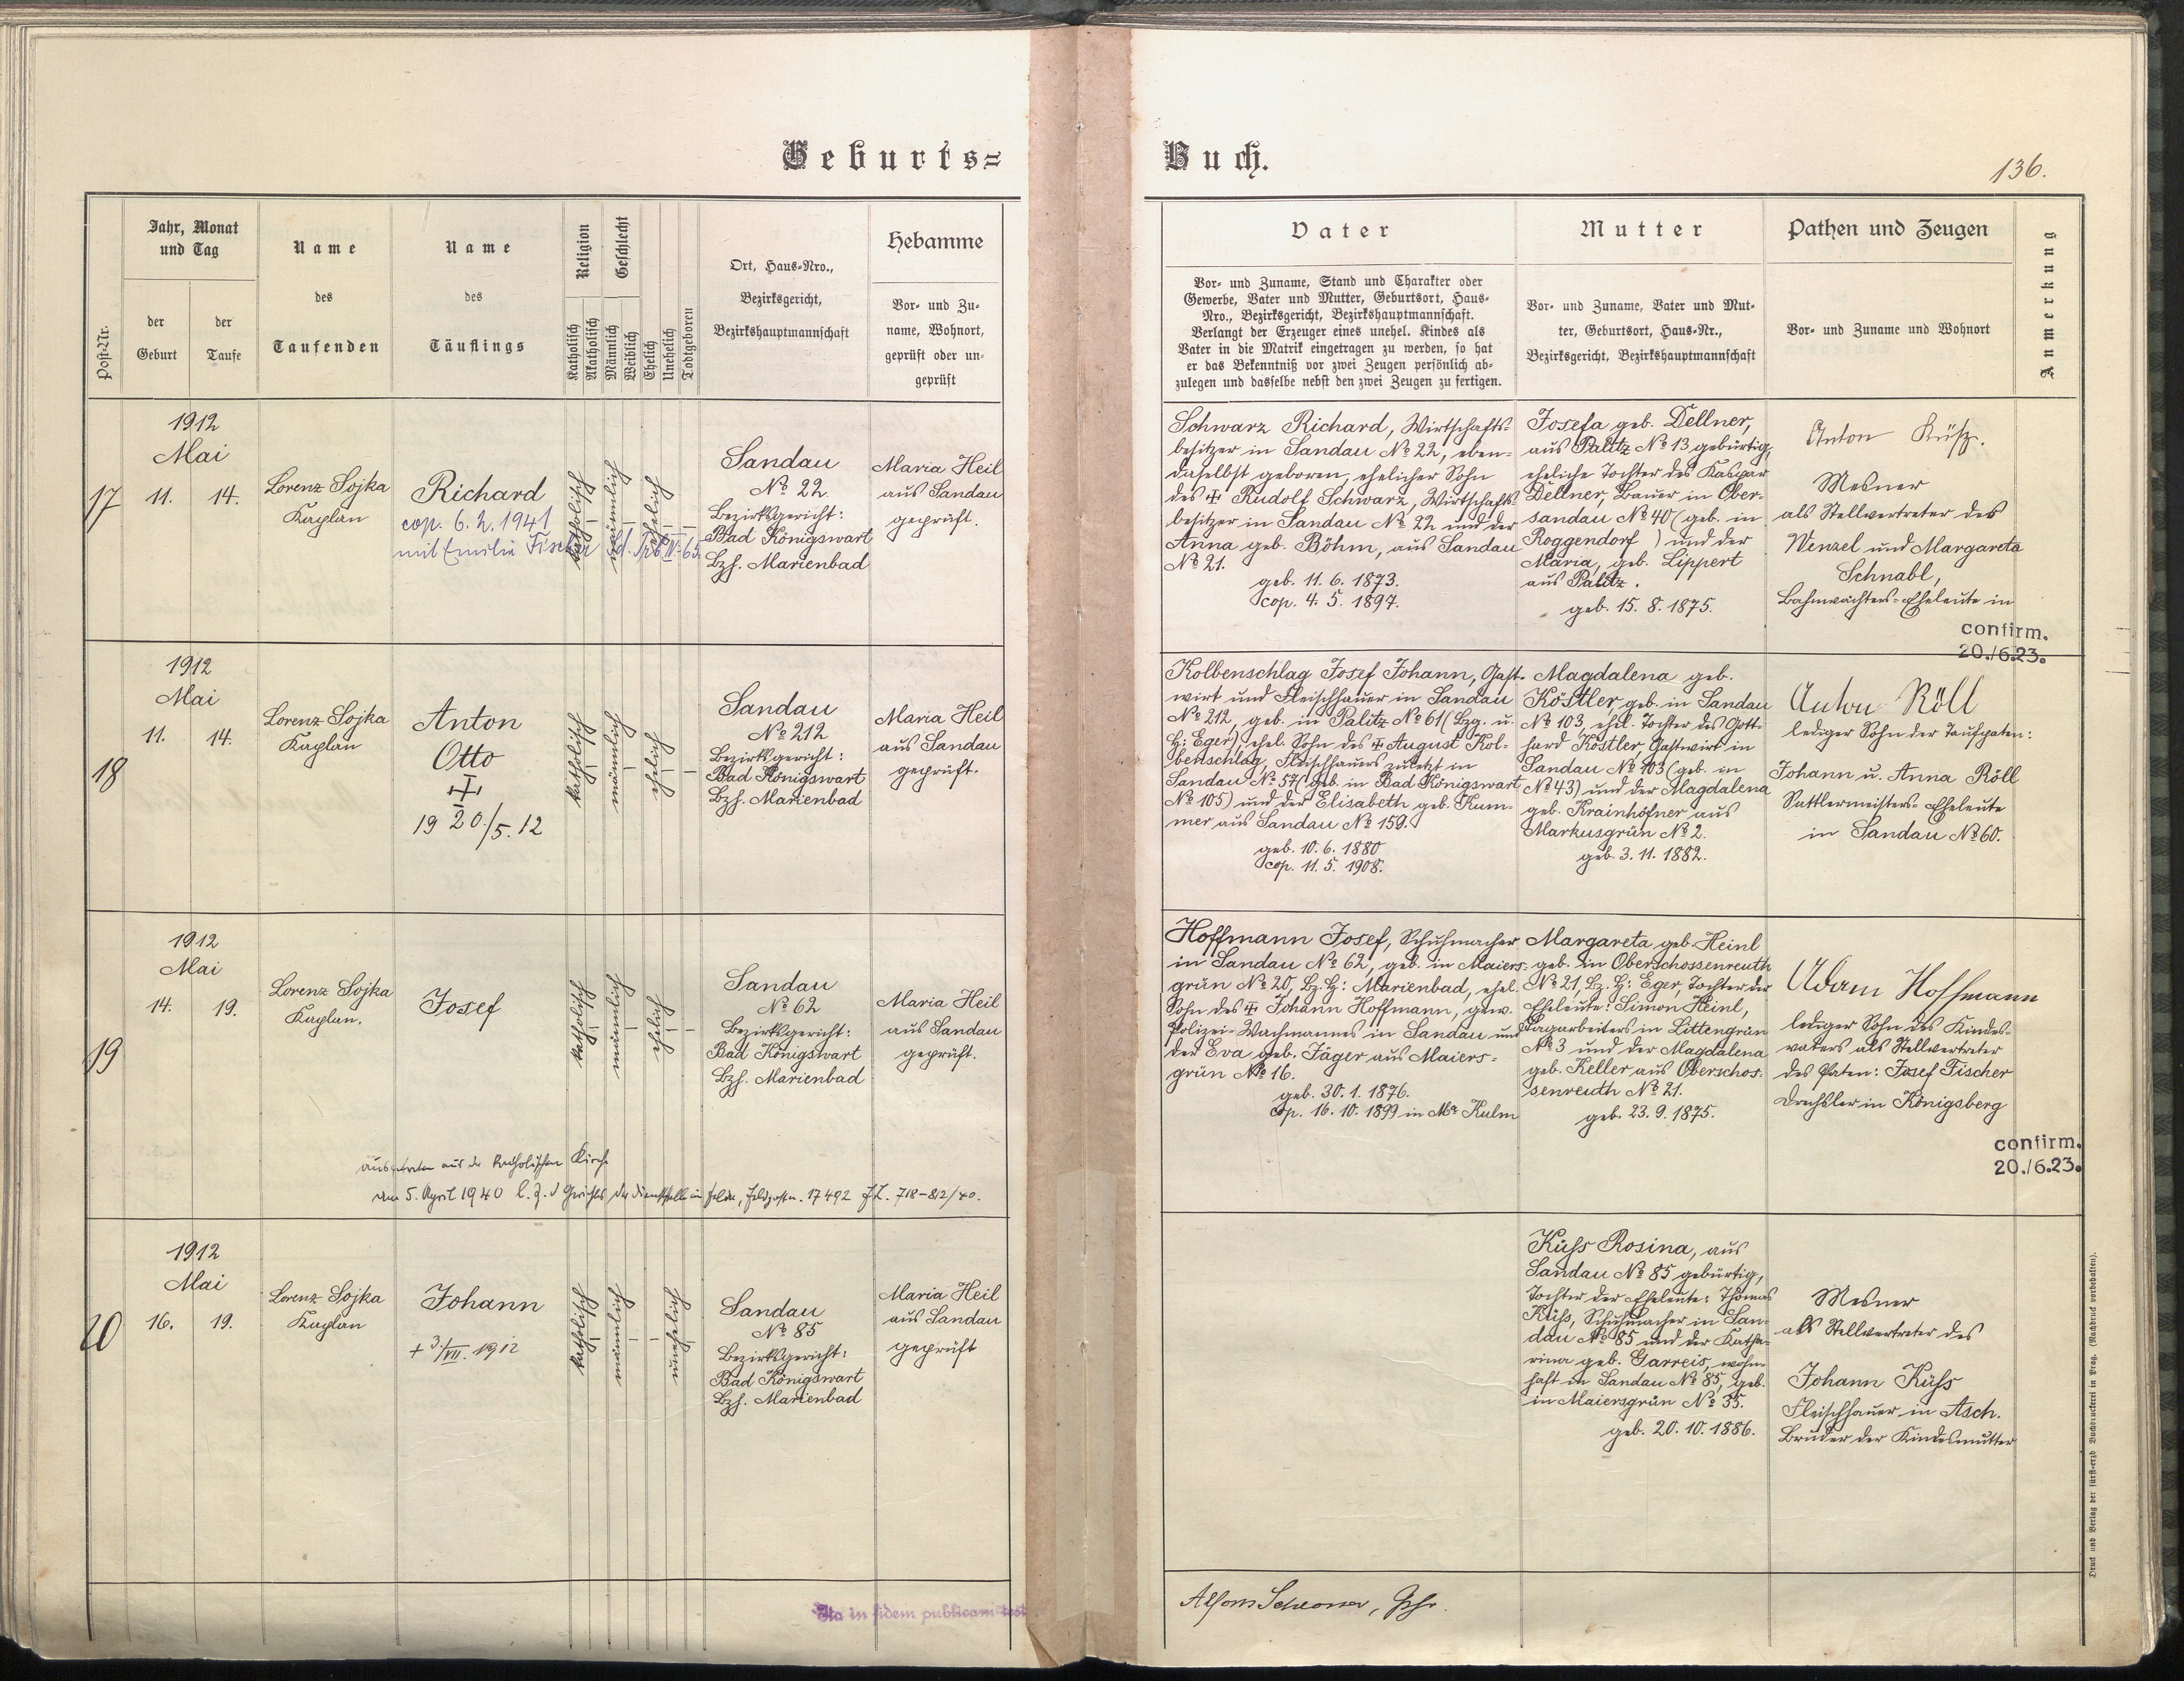 Geburts=
Buch.
136.
Post-Nr.
Jahr, Monat
und Tag
der
Geburt
der
Taufe
Name
des
Taufenden
Name
des
Täuflings
Religion
Katholisch
Akatholisch
Geschlecht
Männlich
Weiblich
Ehelich
Unehelich
Todtgeboren
Ort, Haus-Nro.,
Bezirksgericht,
Bezirkshauptmannschaft
Hebamme
Vor- und Zu-
name, Wohnort,
geprüft oder un-
geprüft
Vater
Vor- und Zuname, Stand und Charakter oder
Gewerbe, Vater und Mutter, Geburtsort, Haus-
Nro., Bezirksgericht, Bezirkshauptmannschaft.
Verlangt der Erzeuger eines unehel. Kindes als
Vater in die Matrik eingetragen zu werden, so hat
er das Bekenntniß vor zwei Zeugen persönlich ab-
zulegen und dasselbe nebst den zwei Zeugen zu fertigen.
Mutter
Vor- und Zuname, Vater und Mut-
ter, Geburtsort, Haus-Nr.,
Bezirksgericht, Bezirkshauptmannschaft
Pathen und Zeugen
Vor- und Zuname und Wohnort
Anmerkung
17
1912
Mai
11. 14.
Lorenz Sojka
Kaplan
Richard
cop. 6.2.1941
mit Emilie Fischer
katholisch
männlich
ehelich
Sandau
No 22
Bezirksgericht:
Bad Königswart
Bzh. Marienbad
Maria Heil
aus Sandau
geprüft.
Schwarz Richard, Wirtschafts-
besitzer in Sandau No 22, eben-
daselbst geboren, ehelicher Sohn
des ✝ Rudolf Schwarz, Wirtschafts-
besitzer in Sandau No 22 und der
Anna geb. Böhm, aus Sandau
No 21.
geb. 11. 6. 1873.
cop. 4. 5. 1897.
Josefa geb. Dellner,
aus Palitz No 13 gebürtig,
eheliche Tochter des Kaspar
Dellner, Bauer in Ober-
sandau No 40 (geb. in
Roggendorf ) und der
Maria, geb. Lippert
aus Palitz.
geb. 15. 8. 1875.
Anton Küß.
Mesner
als Stellvertreter des
Wenzel und Margareta
Schnabl,
Bahnwächters-Eheleute in
confirm.
20./6.23.
18
1912
Mai
11. 14.
Lorenz Sojka
Kaplan
Anton
Otto
✝
19 20./5. 12
katholisch
männlich
ehelich
Sandau
No 212
Bezirksgericht:
Bad Königswart
Bzh. Marienbad
Maria Heil
aus Sandau
geprüft.
Kolbenschlag Josef Johann, Gast-
wirt und Fleischhauer in Sandau
No 212, geb. in Palitz No 61 (Bzg. u.
H: Eger), ehel. Sohn des ✝ August Kol-
benschlag, Fleischhauers zuletzt in
Sandau No 57 (geb. in Bad Königswart
No 105) und der Elisabeth geb. Kum-
mer aus Sandau No 159.
geb. 10. 6. 1880
cop. 11. 5. 1908.
Magdalena geb.
Köstler geb. in Sandau
No 103, ehel. Tochter des Gott-
hard Köstler, Gastwirt in
Sandau No 103 (geb. in
No 43) und der Magdalena
geb. Krainhöfner aus
Markusgrün No 2.
geb. 3. 11. 1882.
Anton Röll
lediger Sohn der Taufpaten:
Johann u. Anna Röll
Sattlermeisters-Eheleute
in Sandau No 60.
19
1912
Mai
14. 19.
Lorenz Sojka
Kaplan.
Josef
katholisch
männlich
ehelich
Sandau
No 62
Bezirksgericht:
Bad Königswart
Bzh. Marienbad
Maria Heil
aus Sandau
geprüft.
Hoffmann Josef, Schuhmacher
in Sandau No 62, geb. in Maiers-
grün No 20, Bz. H: Marienbad, ehel.
Sohn des ✝ Johann Hoffmann, gew.
Polizei-Wachmannes in Sandau und
der Eva geb. Jäger aus Maiers-
grün No 16.
geb. 30. 1. 1876.
cop. 16. 10. 1899 in Ma Kulm
Margareta geb. Heinl
geb. in Oberschossenreuth
No 21, Bz. H: Eger, Tochter der
Eheleute: Simon Heinl,
Tagarbeiters in Littengrün
No 3 und der Magdalena
geb. Keller aus Oberschos-
senreuth No 21.
geb. 23. 9. 1875.
Adam Hoffmann
lediger Sohn des Kindes-
vaters als Stellvertreter
des Paten: Josef Fischer
Drechsler in Königsberg
confirm.
20./6.23.
ausgetreten aus der katholischen Kirche
am 5. April 1940 l. Z. d Gerichts der Dienststelle im Felde, Feldpostn. 17492 JZ. 718-812/40.
20
1912
Mai
16. 19.
Lorenz Sojka
Kaplan
Johann
+ 3./VII. 1912
katholisch
männlich
unehelich
Sandau
No 85
Bezirksgericht:
Bad Königswart
Bzh. Marienbad
Maria Heil
aus Sandau
geprüft
Küss Rosina, aus
Sandau No 85 gebürtig,
Tochter der Eheleute: Thomas
Küss, Schuhmacher in San-
dau No 85 und der Katha-
rina geb. Garreis, wohn-
haft in Sandau No 85, geb.
in Maiersgrün No 35.
geb. 20. 10. 1886.
Mesner
als Stellvertreter des
Johann Küss
Fleischhauer in Asch.
Bruder der Kindesmutter
Ita in fidem publicam test
Druck und Verlag der fürst-erzb Buchdruckerei in Prag. (Nachdruck vorbehalten).